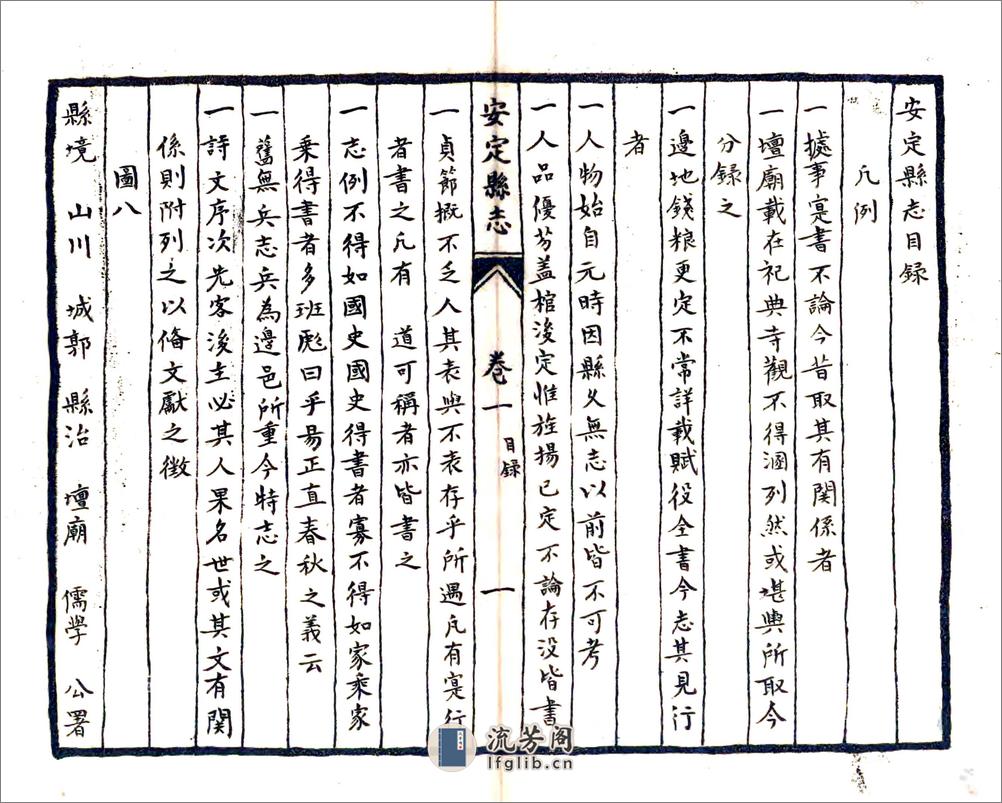 安定縣志目録
凡例
一據事寔書不論今昔取其有関係者
一壇廟載在祀典寺觀不得溷列然或堪輿所取今
分録之
一邊地錢粮更定不常詳載賦役全書今志其見行
者
一人物始自元時因縣久無志以前皆不可考
一人品優劣盖棺後定惟旌揚已定不論存没皆書
安定縣志 卷一 目録 一
一貞節概不乏人其表與不表存乎所遇凡有寔行
者書之凡有 道可稱者亦皆書之
一志例不得如國史國史得書者寡不得如家乘家
乘得書者多班彪曰平易正直春秋之義云
一舊無兵志兵為邊邑所重今特志之
一詩文序次先客後主必其人果名世或其文有関
係則附列之以俻文獻之徴
圖八
縣境 山川 城郭 縣治 壇廟 儒學 公署
流芳阁
lfglib.cn